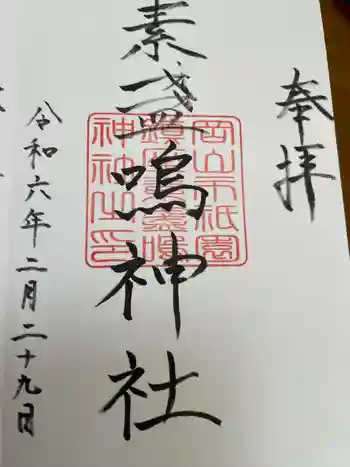 奉拝
素盞嗚神社
岡山市祇園
神社之印
令和六年二月二十九日